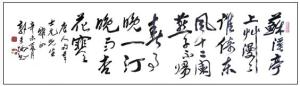 蘇溪亭
上艸漫々
誰倚東
風十二闌
燕子不歸
春事
晚一汀
烟雨杏
花寒
唐人句